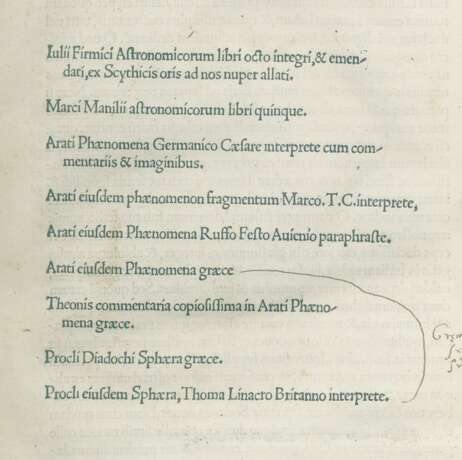 Iulii Firmici Astronomicorum libri octo integri, & emen-
dati, ex Scythicis oris ad nos nuper allati.
Marci Manilii astronomicorum libri quinque.
Arati Phænomena Germanico Cæsare interprete cum com-
mentariis & imaginibus.
Arati eiusdem phænomenon fragmentum Marco. T. C. interprete,
Arati eiusdem Phænomena Ruffo Festo Auienio paraphraste.
Arati eiusdem Phænomena græce
Theonis commentaria copiosissima in Arati Phæno-
mena græce.
Procli Diadochi Sphæra græce.
Procli eiusdem Sphæra, Thoma Linacro Britanno interprete.